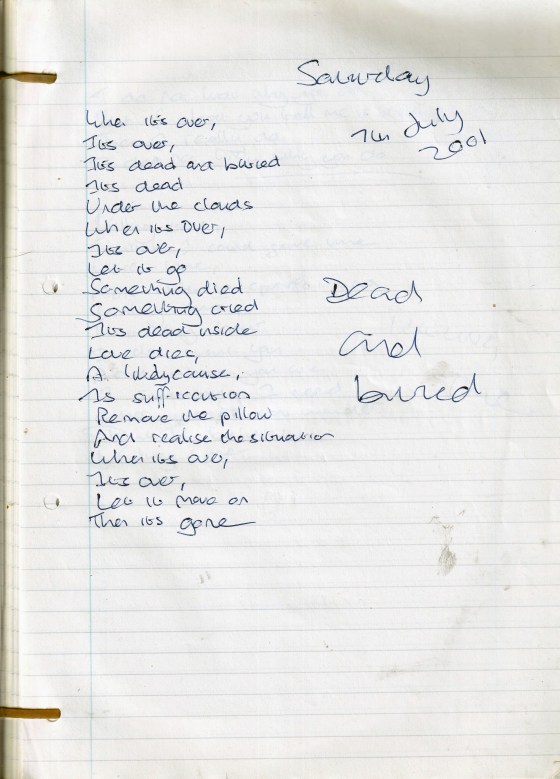 Saturday
7th July
2001
When its over,
Its over,
Its dead and buried
Its dead
Under the clouds
When its over,
Its over,
Let it go
Something died
Something cried
Its dead inside
Love dies,
A likely cause,
Is suffication
Remove the pillow
And realise the situation
When its over,
Its over,
Let it move on
Then its gone
Dead
and
buried